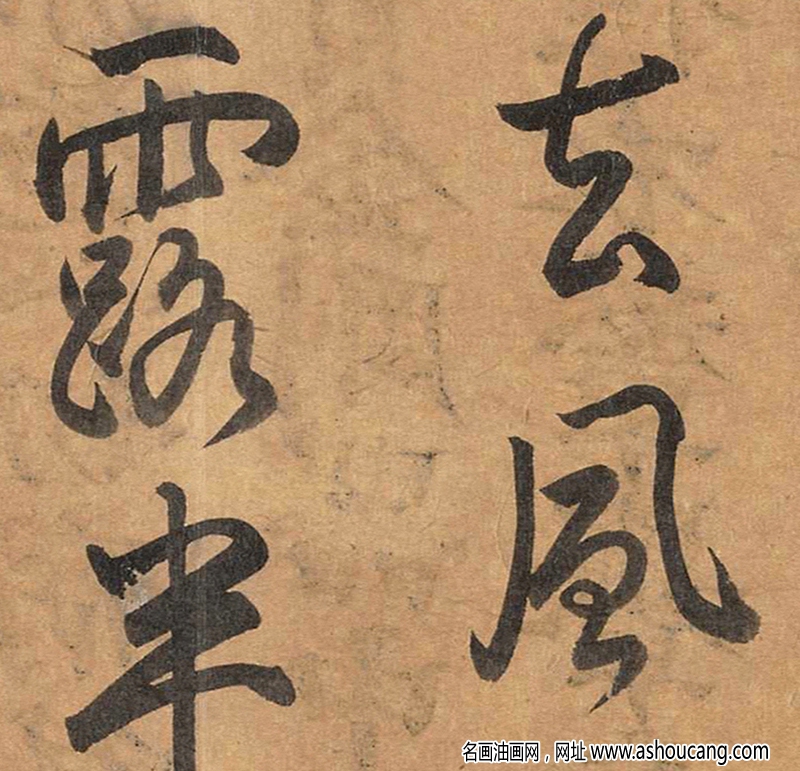 去風
露半
名画油画网，网址 www.ashoucang.com